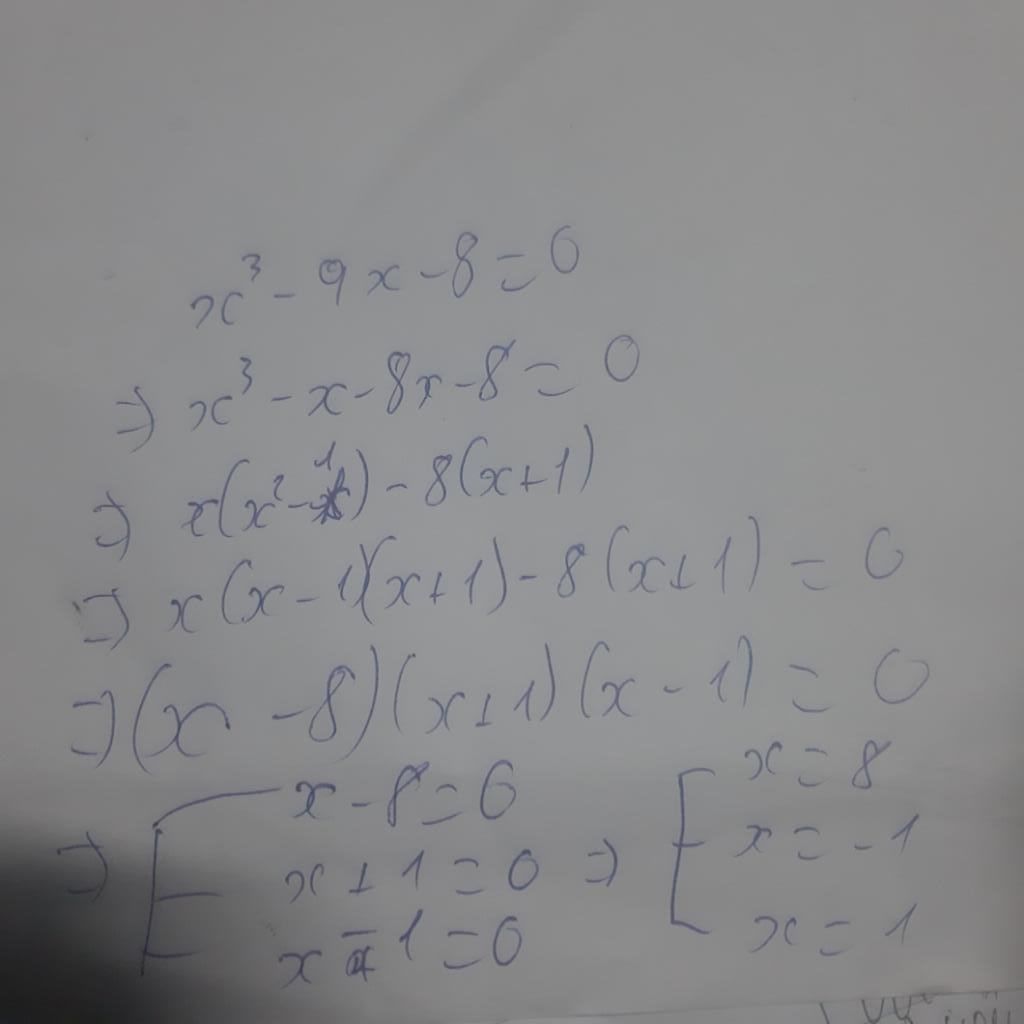 x³ - 9x - 8 = 0
=> x³ - x - 8x - 8 = 0
=> x(x² - 1) - 8(x+1)
=> x(x - 1)(x+1) - 8(x+1) = 0
=> (x - 8)(x+1)(x - 1) = 0
=> [ x - 8 = 0 => [ x = 8
x + 1 = 0 x = -1
x - 1 = 0 x = 1